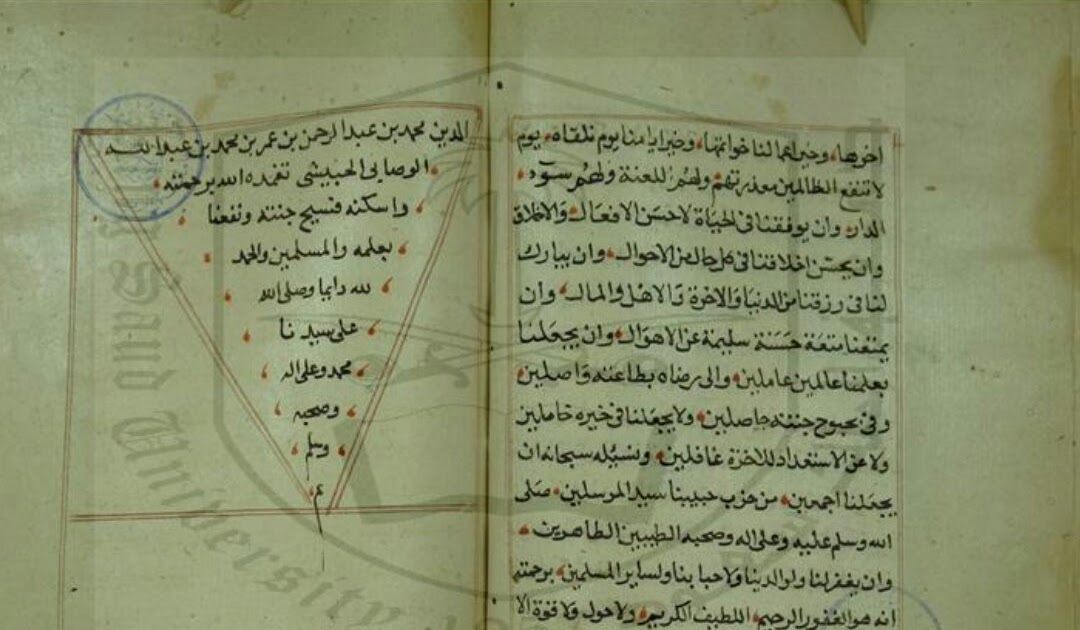 اخرها، وخير اعمالنا خواتمها، وخير ايامنا يوم نلقاه، يوم
لا تنفع الظالمين معذرتهم ولهم اللعنة ولهم سوء
الدار، وان يوفقنا في الحياة لاحسن الافعال والاخلاق
وان يحسن اخلاقنا في كل حال من الاحوال، وان يبارك
لنا في رزقنا من الدنيا والاخرة والاهل والمال، وان
يمتعنا متعة حسنة سليمة عن الاهوال، وان يجعلنا
بعلمنا عالمين عاملين، والى رضاه بطاعته واصلين،
وفي بحبوح جنته حاصلين، ولا يجعلنا في خيره خاملين
ولا عن الاستعداد للاخرة غافلين، ونسئله سبحانه ان
يجعلنا اجمعين، من حزب حبيبنا سيد المرسلين، صلى
الله وسلم عليه وعلى اله وصحبه الطيبين الطاهرين،
وان يغفر لنا ولوالدينا ولاحبابنا ولساير المسلمين، برحمته
انه هو الغفور الرحيم، اللطيف الكريم، ولا حول ولا قوة الا
الدين محمد بن عبد الرحمن بن عمر بن محمد بن عبد الله
الوصابي الحبيشي تغمده الله برحمته،
واسكنه فسيح جنته ونفعنا
بعلمه والمسلمين والحمد
لله دايما وصلى الله
على سيدنا
محمد وعلى اله
وصحبه
وسلم
م
Saud University